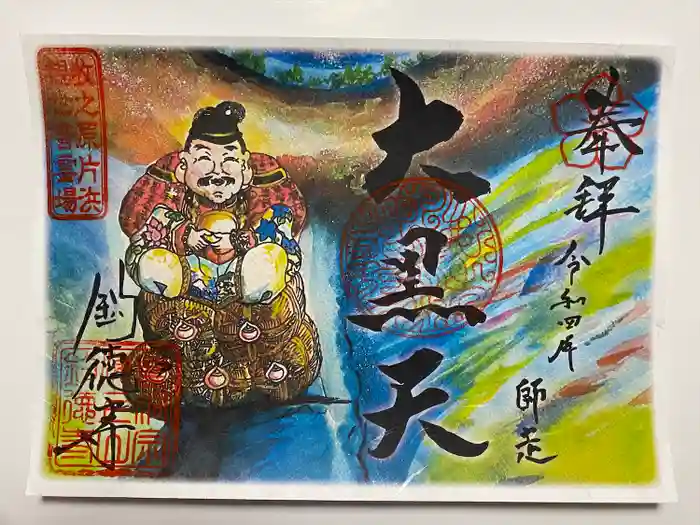 奉拝
令和四年
師走
大黒天
牧之原片浜
観世音霊場
釣徳寺